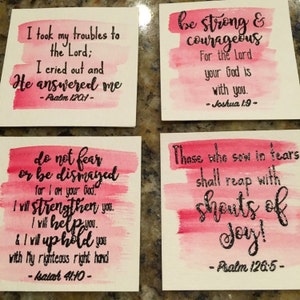 I took my troubles to
the Lord;
I cried out and
He answered me
- Psalm 120:1 -
be strong &
courageous
For the Lord
your God is
with you.
- Joshua 1:9 -
do not fear
or be dismayed
for I am your God.
I will strengthen you,
I will help you,
& I will uphold you
with My righteous right hand
- Isaiah 41:10 -
Those who sow in tears
shall reap with
shouts of
Joy!
- Psalm 126:5 -